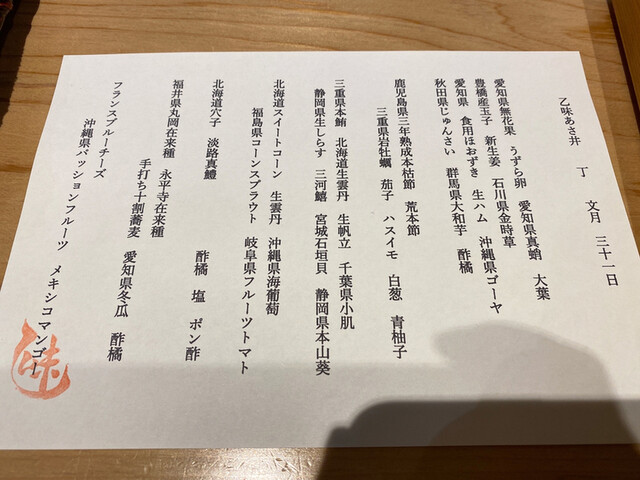 乙味あさ井　丁　文月　三十一日
愛知県無花果　うずら卵　愛知県真蛸　大葉
豊橋産玉子　新生姜　石川県金時草
愛知県　食用ほおずき　生ハム　沖縄県ゴーヤ
秋田県じゅんさい　群馬県大和芋　酢橘
鹿児島県三年熟成本枯節　荒本節
三重県岩牡蠣　茄子　ハスイモ　白葱　青柚子
三重県本鮪　北海道生雲丹　生帆立　千葉県小肌
静岡県生しらす　三河鱚　宮城石垣貝　静岡県本山葵
北海道スイートコーン　生雲丹　沖縄県海葡萄
福島県コーンスプラウト　岐阜県フルーツトマト
北海道穴子　淡路真鱧　酢橘　塩　ポン酢
福井県丸岡在来種　永平寺在来種
手打ち十割蕎麦　愛知県冬瓜　酢橘
フランスブルーチーズ
沖縄県パッションフルーツ　メキシコマンゴー